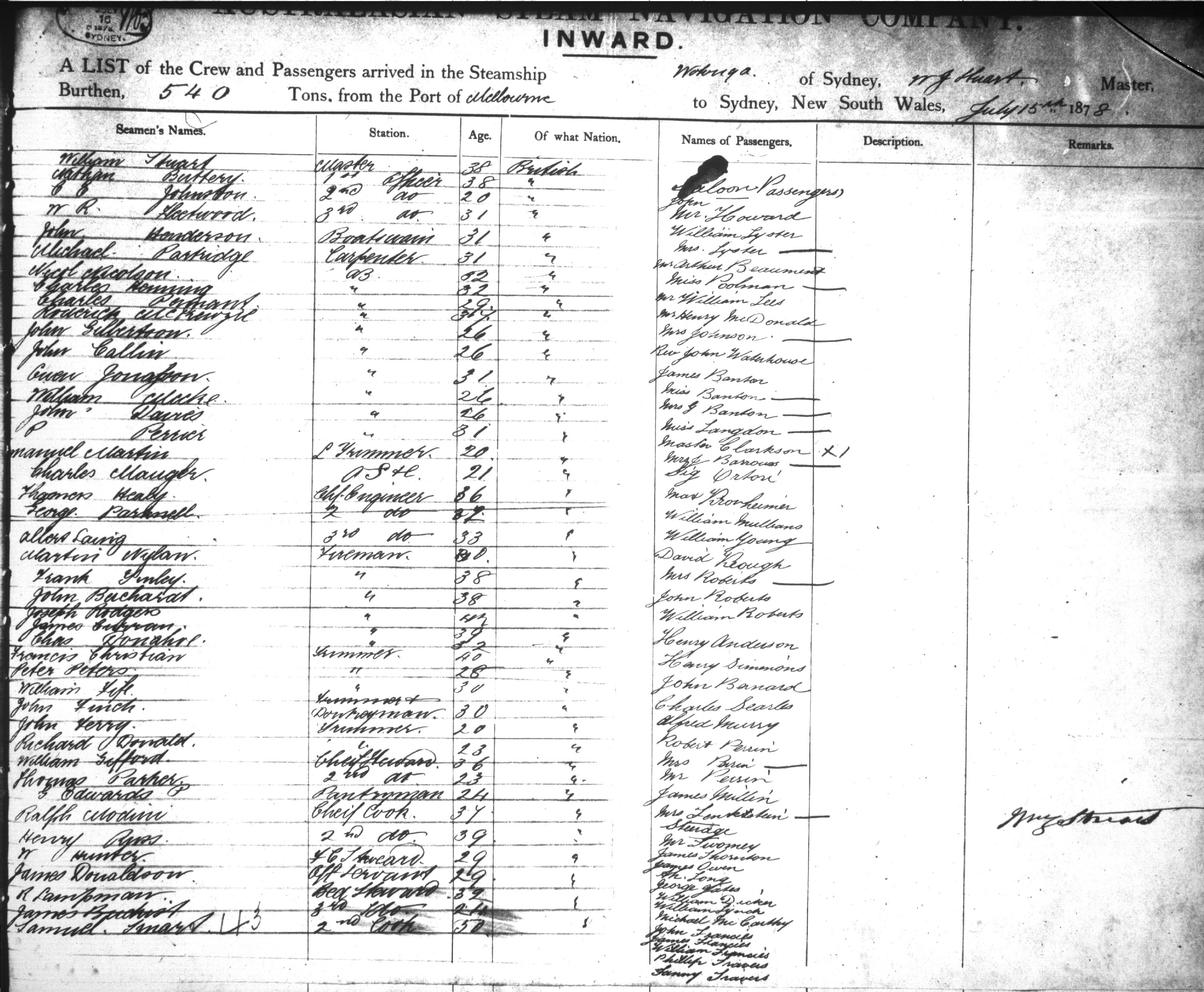 AUSTRALASIAN STEAM NAVIGATION COMPANY.
SYDNEY.
INWARD.
A LIST of the Crew and Passengers arrived in the Steamship Wotonga of Sydney, W J Stuart, Master,
Burthen, 540 Tons, from the Port of Melbourne to Sydney, New South Wales, July 15th 1878
Seamen's Names. Station. Age. Of what Nation. Names of Passengers. Description. Remarks.
William Stuart Master 38 British
Nathan Buttery. 1st Officer 38 "
C E Johnston. 2nd do 20 "
W R. Fleetwood. 3rd do 31 "
John Henderson. Boatswain 31 "
Michael Partridge Carpenter. 31 "
Nicol Nicolson. AB 32 "
Charles Henning " 32 "
Charles Pennant " 29 "
Roderick "
John Gilbertson. " 26 "
John Callin " 26 "
Owen " 31 "
William " 26 "
John Davies " 26 "
P Perrier " 31 "
Martin L Trimmer. 20 "
Charles Mauger. 21 "
Thomas Healy. Chf. Engineer 36 "
George Parknell. 2 do 37 "
Laing 3rd do 33 "
Martin Nylan. Fireman. 40. "
Frank Finley. " 38 "
John Buchardt. " 38 "
Joseph Rodgers " "
James Curran. " 39 "
Chas Donahoe. " 32
Francis Christian Trimmer. 40 "
Peter Peters. " 28 "
William " 30 "
John Finch. Trimmer & Donkeyman. 30 "
John Terry. Trimmer. 20 "
Richard Donald. " 23 "
William Gifford. Cheif Steward. 36 "
Thomas Parker. 2nd do 23 "
Edwards P Pantryman 24 "
Ralph Modini Cheif Cook. 37 "
Henry Ross. 2nd do 39 "
W Hunter. F C Steward. 29 "
James Donaldson. Off Servant 29 "
R Lampman. Bed Steward 32 "
James 3rd do
Samuel. Smart. 43 2nd Cook 50. "
Saloon Passengers
John
Mr Howard
William Lyster
Mrs. Lyster
Mr Arthur Beaumont
Miss Poolman
Mr William Lees
Mr Henry McDonald
Mrs Johnson
Rev John Waterhouse
James Banton
Miss Banton
Mrs J Banton
Miss Langdon
Master Clarkson X1
Mrs J Barrows
Sig Ortori
Max Kronheimer
William Mullins
William Young
David Keough
Mrs Roberts
John Roberts
William Roberts
Henry Anderson
Harry Simmons
John Barnard
Charles Searles
Alfred Murry
Robert Perrin
Mrs Perrin
Mr Perrin
James Millin
Mrs
Steerage
Mr Twomey
James Thornton
James Owen
Ah. Long
George Yates
William
William Lynch
Michael McCarthy
John Francies
James Francies
William Francies
Phillip Travers
Fanny Travers
Wm J Stuart